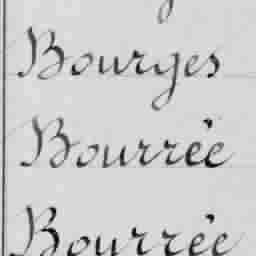 Bourges
Bourrée
Bourrée